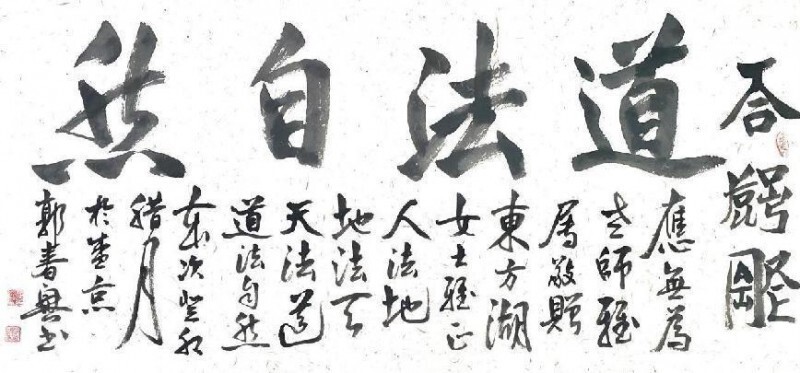 道法自然
應無為
老師雅
屬敬贈
東方湖
女士雅正
人法地
地法天
天法道
道法自然
歲次癸卯
腊月
於京
郭春興书